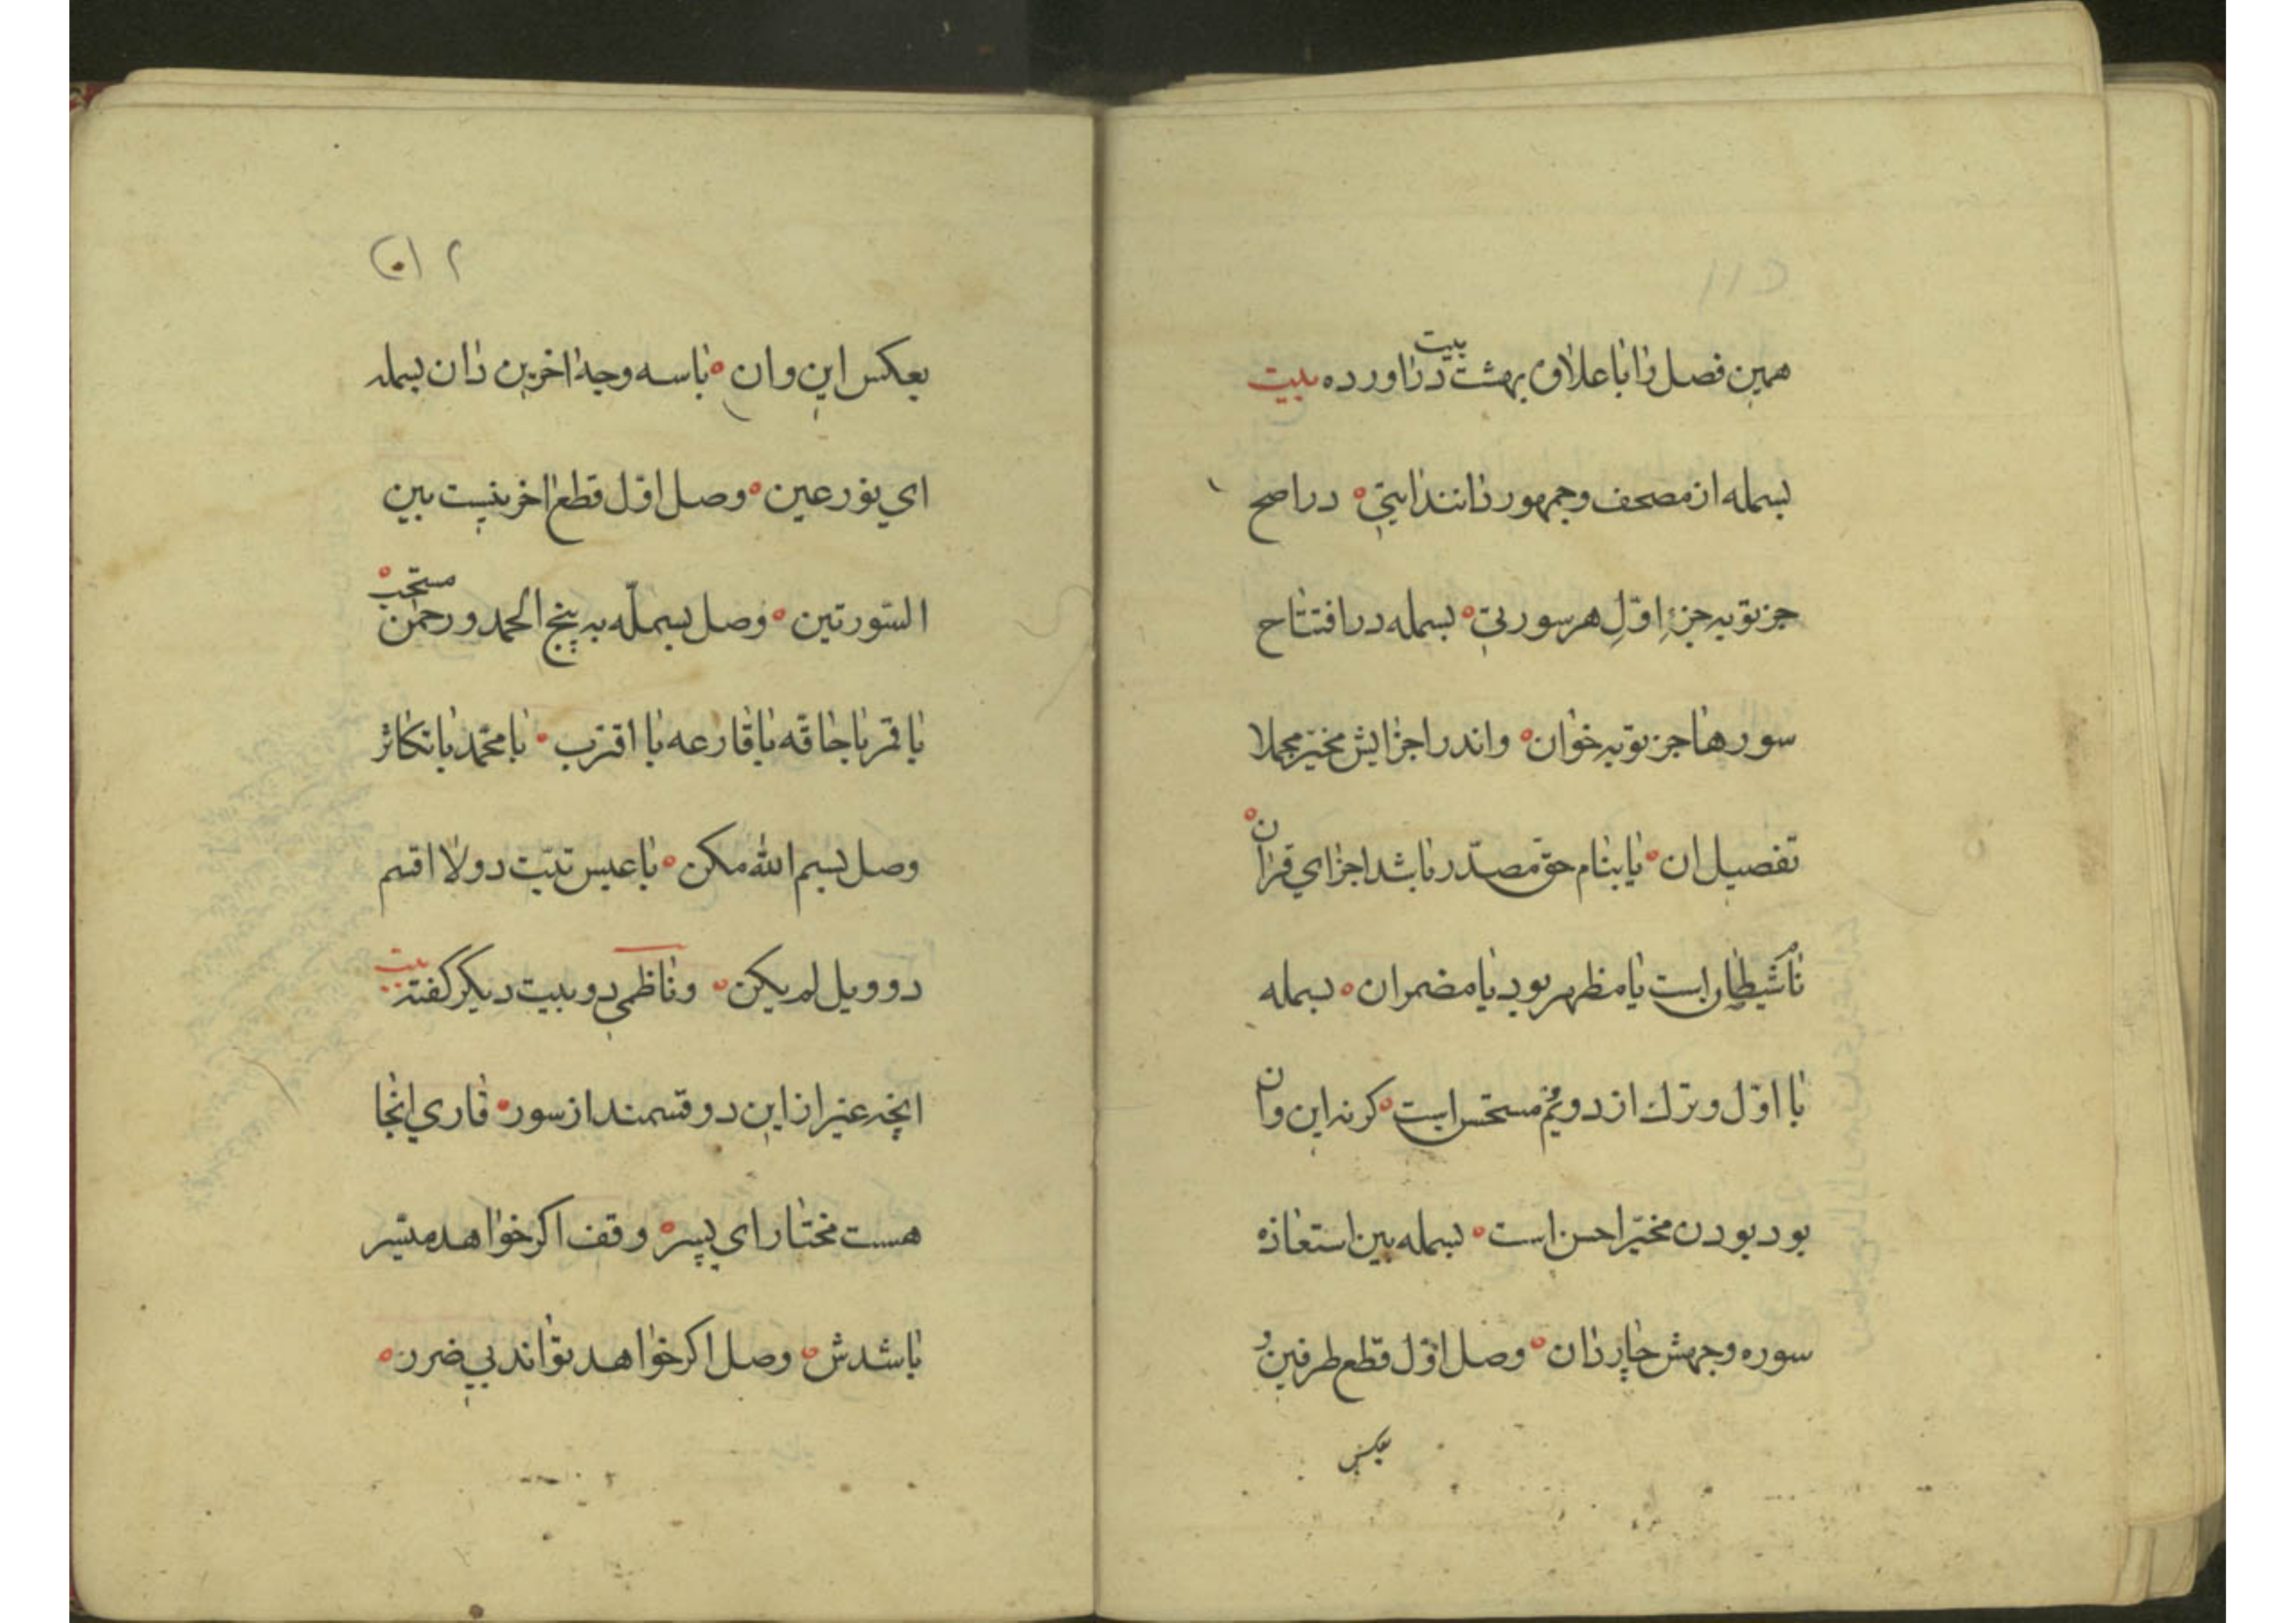 همین فصل را با علاوه بهشت بیت دراورده بیت
بسمله از مصحف و جمهور دانند ایتی ه در اصح
جز توبه جزءِ اوّلِ هر سورتی ه بسمله در افتتاح
سورها جز توبه خوان ه واندر اجزایش مخیّر مجملا
تفصیل ان ه یا بنام حق مصدّر باشد اجزای قران ه
یا مظهر بود یا مضمران ه بسمله
با اوّل و ترك از دویم مستحسن است ه كرنه این وان
بود بودن مخیّر احسن است ه بسمله بین استعاذه
سوره وجهش چار دان ه وصل اوّل قطع طرفین و
بعکس
بعکس این وان ه با سه وجه اخرین دان بسمله
ای نور عین ه وصل اوّل قطع اخر نیست بین
السّورتین ه وصل بسمله به پنج الحمد و رحمن مستحب ه
با قمر با حاقّه با قارعه با اقترب ه با محمّد با تکاثر
وصل بسم الله مکن ه با عبس تبّت دو لا اقسم
دو ویل لم یکن ه و ناظمی دو بیت دیکر کفته بیت
انچه غیر از این دو قسمند از سور ه قاری انجا
هست مختار ای پسر ه وقف اکر خواهد میسّر
باشدش ه وصل اکر خواهد تواند بی ضرر ه